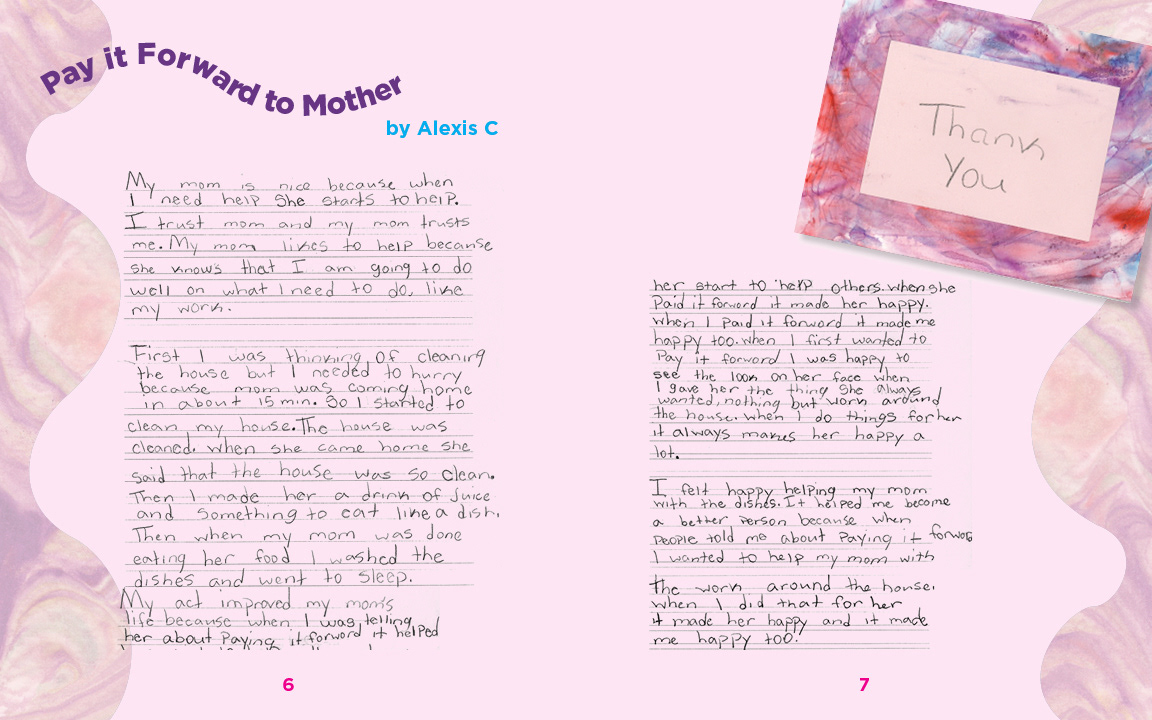 Pay it Forward to Mother
by Alexis C
My mom is nice because when
I need help She starts to help.
I trust mom and my mom trusts
me. My mom likes to help because
she knows that I am going to do
well on what I need to do, like
my work.
First I was thinking of cleaning
the house but I needed to hurry
because mom was coming home
in about 15 min. So I started to
clean my house. The house was
cleaned. When she came home she
said that the house was so clean.
Then I made her a drink of juice
and Something to eat like a dish.
Then when my mom was done
eating her food I washed the
dishes and went to sleep.
My act improved my mom's
life because when I was telling
her about Paying it forward it helped
6
Thank
You
her start to help others. when she
Paid it forward it made her happy.
When I Paid it forward it made me
happy too. when I first wanted to
Pay it forward I was happy to
see the look on her face when
I gave her the thing She always
wanted, nothing but work around
the house. when I do things for her
it always makes her happy a
lot.
I felt happy helping my mom
with the dishes. It helped me become
a better Person because when
People told me about Paying it forwor
I wanted to help my mom with
the work around the house.
when I did that for her
it made her happy and it made
me happy too!
7